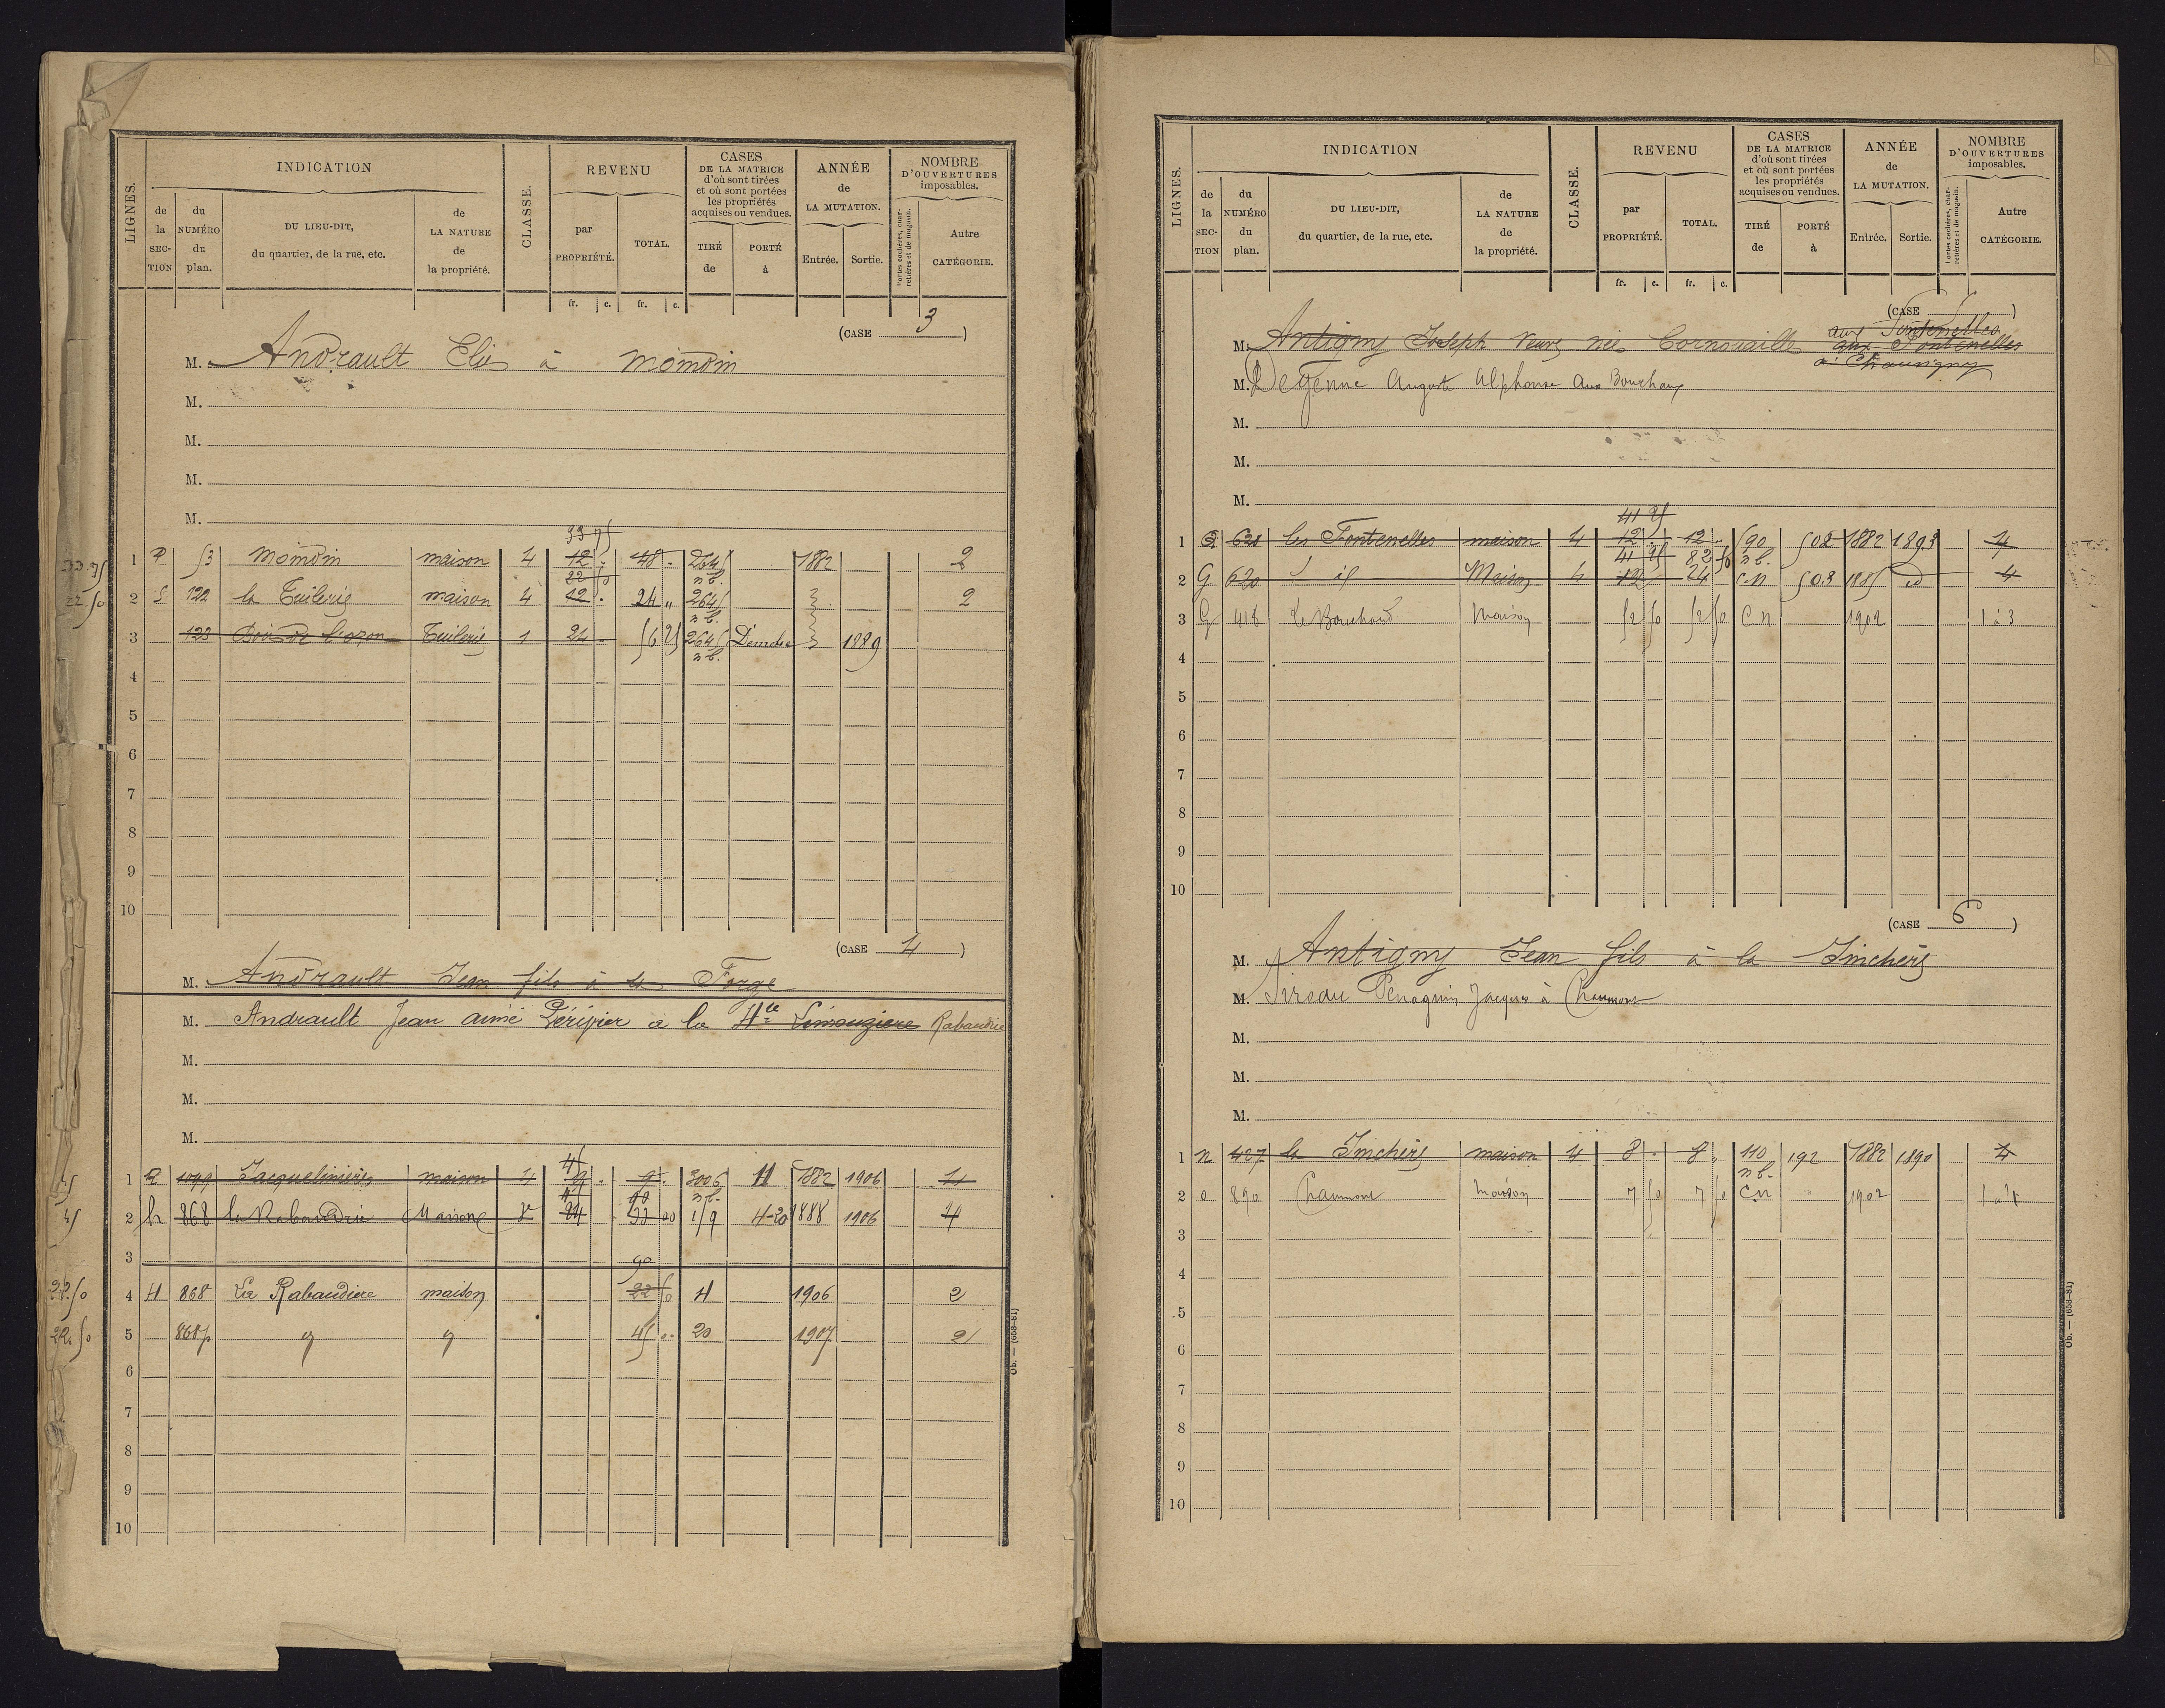 LIGNES. INDICATION CLASSE. REVENU CASES DE LA MATRICE d'où sont tirées et où sont portées les propriétés acquises ou vendues. ANNÉE de LA MUTATION. NOMBRE D'OUVERTURES imposables.
de la SECTION du NUMÉRO du plan. DU LIEU-DIT, du quartier, de la rue, etc. de LA NATURE de la propriété. par PROPRIÉTÉ. TOTAL. TIRÉ de PORTÉ à Entrée. Sortie. Portes cochères, charretières et de magasin. Autre CATÉGORIE.
fr. c. fr. c.
(CASE 3)
M. Andrault Elie à momdin
M.
M.
M.
M.
33 75
33.75 1 P 53 momdin maison 4 12 . 48 . 2645 n b. 1882 2
22 50
22.50 2 S 122 la Tuilerie maison 4 12 . 24 " 2645 n b. 2
3 123 Bois de l'ozon Tuilerie 1 24 - 56 25 2645 n b. 1889
4
5
6
7
8
9
10
(CASE 4)
M. Andrault Jean fils à la Forge
M. Andrault Jean aimé Péripier a la Hte Limouziere Rabaudrie
M.
M.
M.
45
1 1099 Jacquelinière maison 4 9 . 3006 n b. 11 1882 1906 4
45 90
45 2 h 868 la Rabaudrie Maison 24 159 4-20 1888 1906 4
3
90
22.50 4 H 868 La Rabaudiere maison 22 50 4 1906 2
22.50 5 868p 45 .. 20 1907 2
6
7
8
9
10
Ob. — (653-81)
LIGNES. INDICATION CLASSE. REVENU CASES DE LA MATRICE d'où sont tirées et où sont portées les propriétés acquises ou vendues. ANNÉE de LA MUTATION. NOMBRE D'OUVERTURES imposables.
de la SECTION du NUMÉRO du plan. DU LIEU-DIT, du quartier, de la rue, etc. de LA NATURE de la propriété. par PROPRIÉTÉ. TOTAL. TIRÉ de PORTÉ à Entrée. Sortie. Portes cochères, charretières et de magasin. Autre CATÉGORIE.
fr. c. fr. c.
(CASE 5)
aux Fontenelles
M. Antigny Joseph Veuve née Cornouaille aux Fontenelles
à Chauvigny
M. Degenne Auguste Alphonse aux Bouchaux
M.
M.
M.
41 25
1 G 620 les Fontenelles maison 4 12 12 . 590 n b. 502 1882 1893 4
41 25 82 50
2 G 620 id Maison 4 12 24 C.N 503 1885 id 4
3 G 418 Le Bouchaud Maison 52 50 52 50 C.N 1902 1 à 3
4
5
6
7
8
9
10
(CASE 6)
M. Antigny Jean fils à la Jinchère
M. Jacques à Chaumont
M.
M.
M.
1 n 427 la Jinchère maison 4 8 . 8 " 110 n b. 192 1882 1890 4
2 o 890 Chaumont Maison 7 50 7 50 C.N 1902 1 à 4
3
4
5
6
7
8
9
10
Ob. — (653-81)